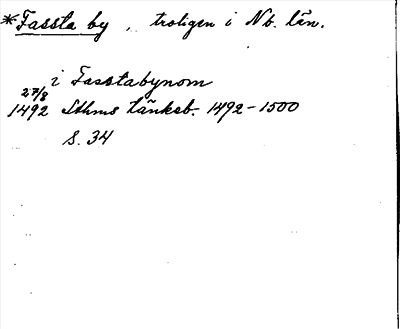 *Fassta by, troligen i Nb. län.
i Fasstabynom
27/8
1492 Sthms tänkeb. 1492-1500
S. 34